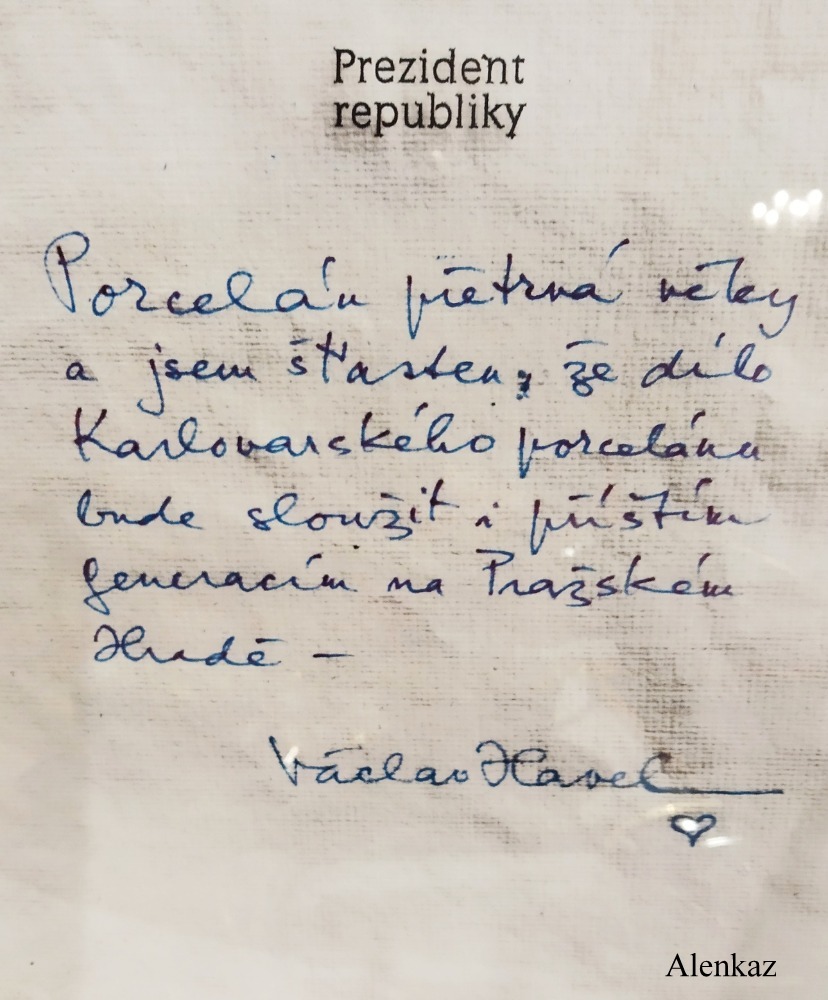 Prezident
republiky
Porcelán přetrvá věky
a jsem šťasten, že dílo
Karlovarského porcelánu
bude sloužit i příštím
generacím na Pražském
Hradě –
Václav Havel
Alenkaz